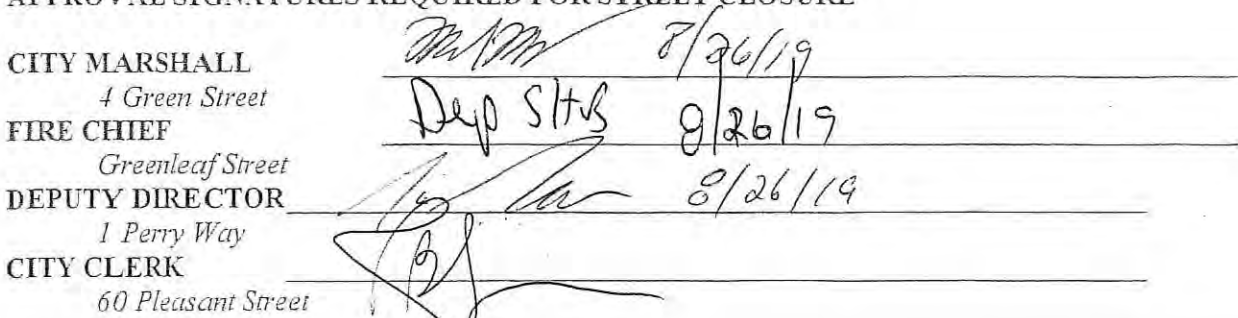 APPROVAL SIGNATURES REQUIRED FOR STREET CLOSURE
CITY MARSHALL 8/26/19
4 Green Street
FIRE CHIEF Dep 8/26/19
Greenleaf Street
DEPUTY DIRECTOR 8/26/19
1 Perry Way
CITY CLERK
60 Pleasant Street